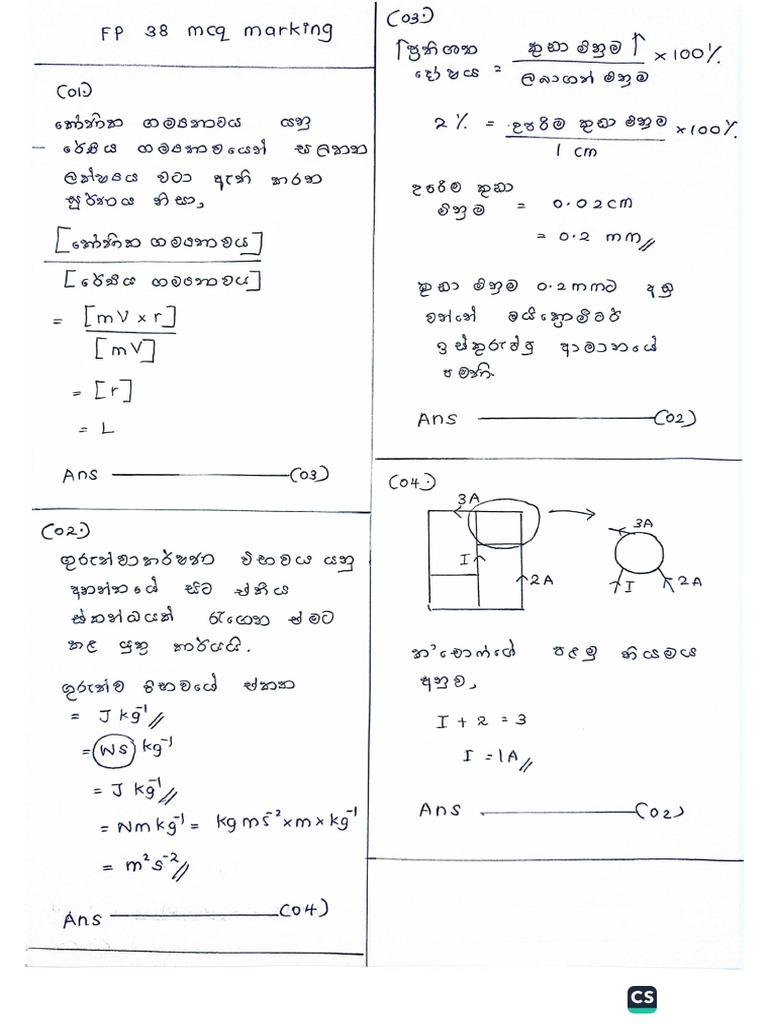 FP 38 mcq marking
(01)
කෝණික ගම්‍යතාවය යනු
රේඛීය ගම්‍යතාවයෙන් සලකන
ලක්ෂයය වටා ඇති කරන
සූර්ණය නිසා,
[කෝණික ගම්‍යතාවය]
[රේඛීය ගම්‍යතාවය]
= [mV x r]
[mV]
= [r]
= L
Ans (03)
(02)
ගුරුත්වාකර්ෂණ විභවය යනු
අනන්තයේ සිට ඒකීය
ස්කන්ධයක් රැගෙන ඒමට
කළ යුතු කාර්යයි.
ගුරුත්ව විභවයේ ඒකක
= J kg⁻¹//
= (WS) kg⁻¹
= J kg⁻¹//
= Nm kg⁻¹ = kg ms⁻² x m x kg⁻¹
= m² s⁻²//
Ans (04)
(03)
↑ප්‍රතිශත දෝෂය = කුඩා මිනුම ↑ x 100%
ලබාගත් මිනුම
2% = උපරිම කුඩා මිනුම x 100%
1 cm
උපරිම කුඩා මිනුම = 0.02cm
= 0.2 mm//
කුඩා මිනුම 0.2mmට අනු
වන්නේ මයික්‍රොමීටර්
ඉස්කුරුප්පු ආමානයේ
පමණි.
Ans (02)
(04)
3A
I
2A
3A
I
2A
ක'චොෆ්ගේ පළමු නියමය
අනුව,
I + 2 = 3
I = 1A//
Ans (02)
CS